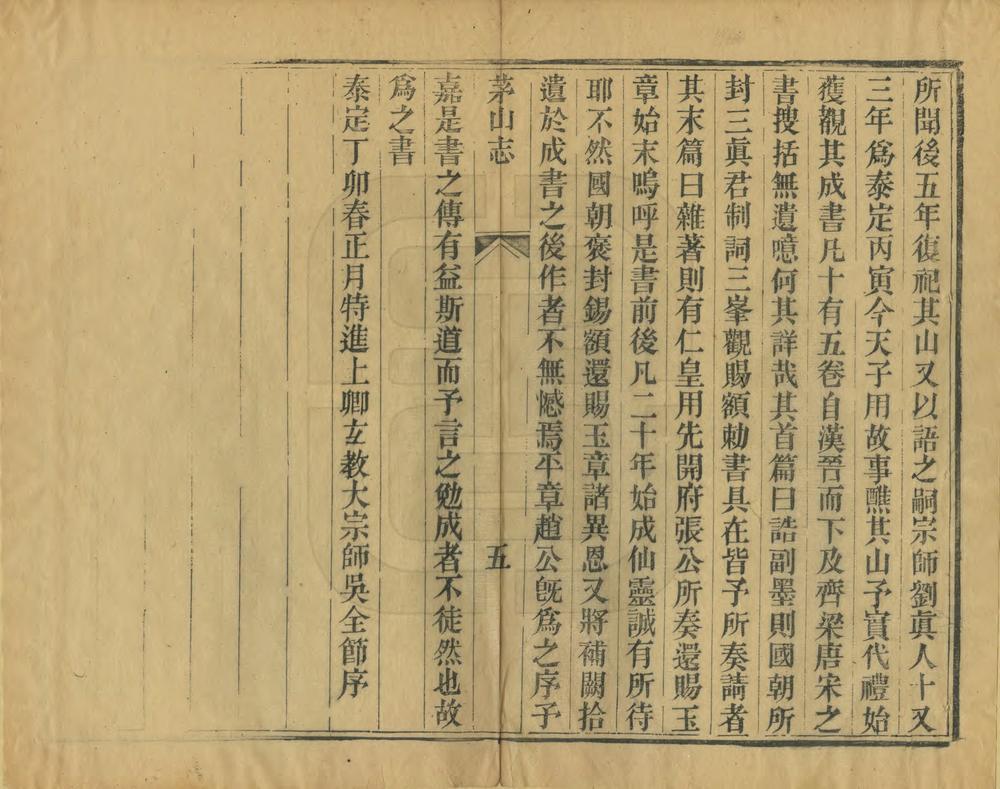 所聞後五年復祀其山又以語之嗣宗師劉眞人十又
三年爲泰定丙寅今天子用故事醮其山予實代禮始
獲觀其成書凡十有五卷自漢晉而下及齊梁唐宋之
書搜括無遺噫何其詳哉其首篇曰誥副墨則國朝所
封三眞君制詞三峯觀賜額勅書具在皆予所奏請者
其末篇曰雜著則有仁皇用先開府張公所奏還賜玉
章始末嗚呼是書前後凡二十年始成仙靈誠有所待
耶不然國朝褒封錫額還賜玉章諸異恩又將補闕拾
遺於成書之後作者不無憾焉平章趙公旣爲之序予
茅山志 五
嘉是書之傳有益斯道而予言之勉成者不徒然也故
爲之書
泰定丁卯春正月特進上卿玄教大宗師吳全節序